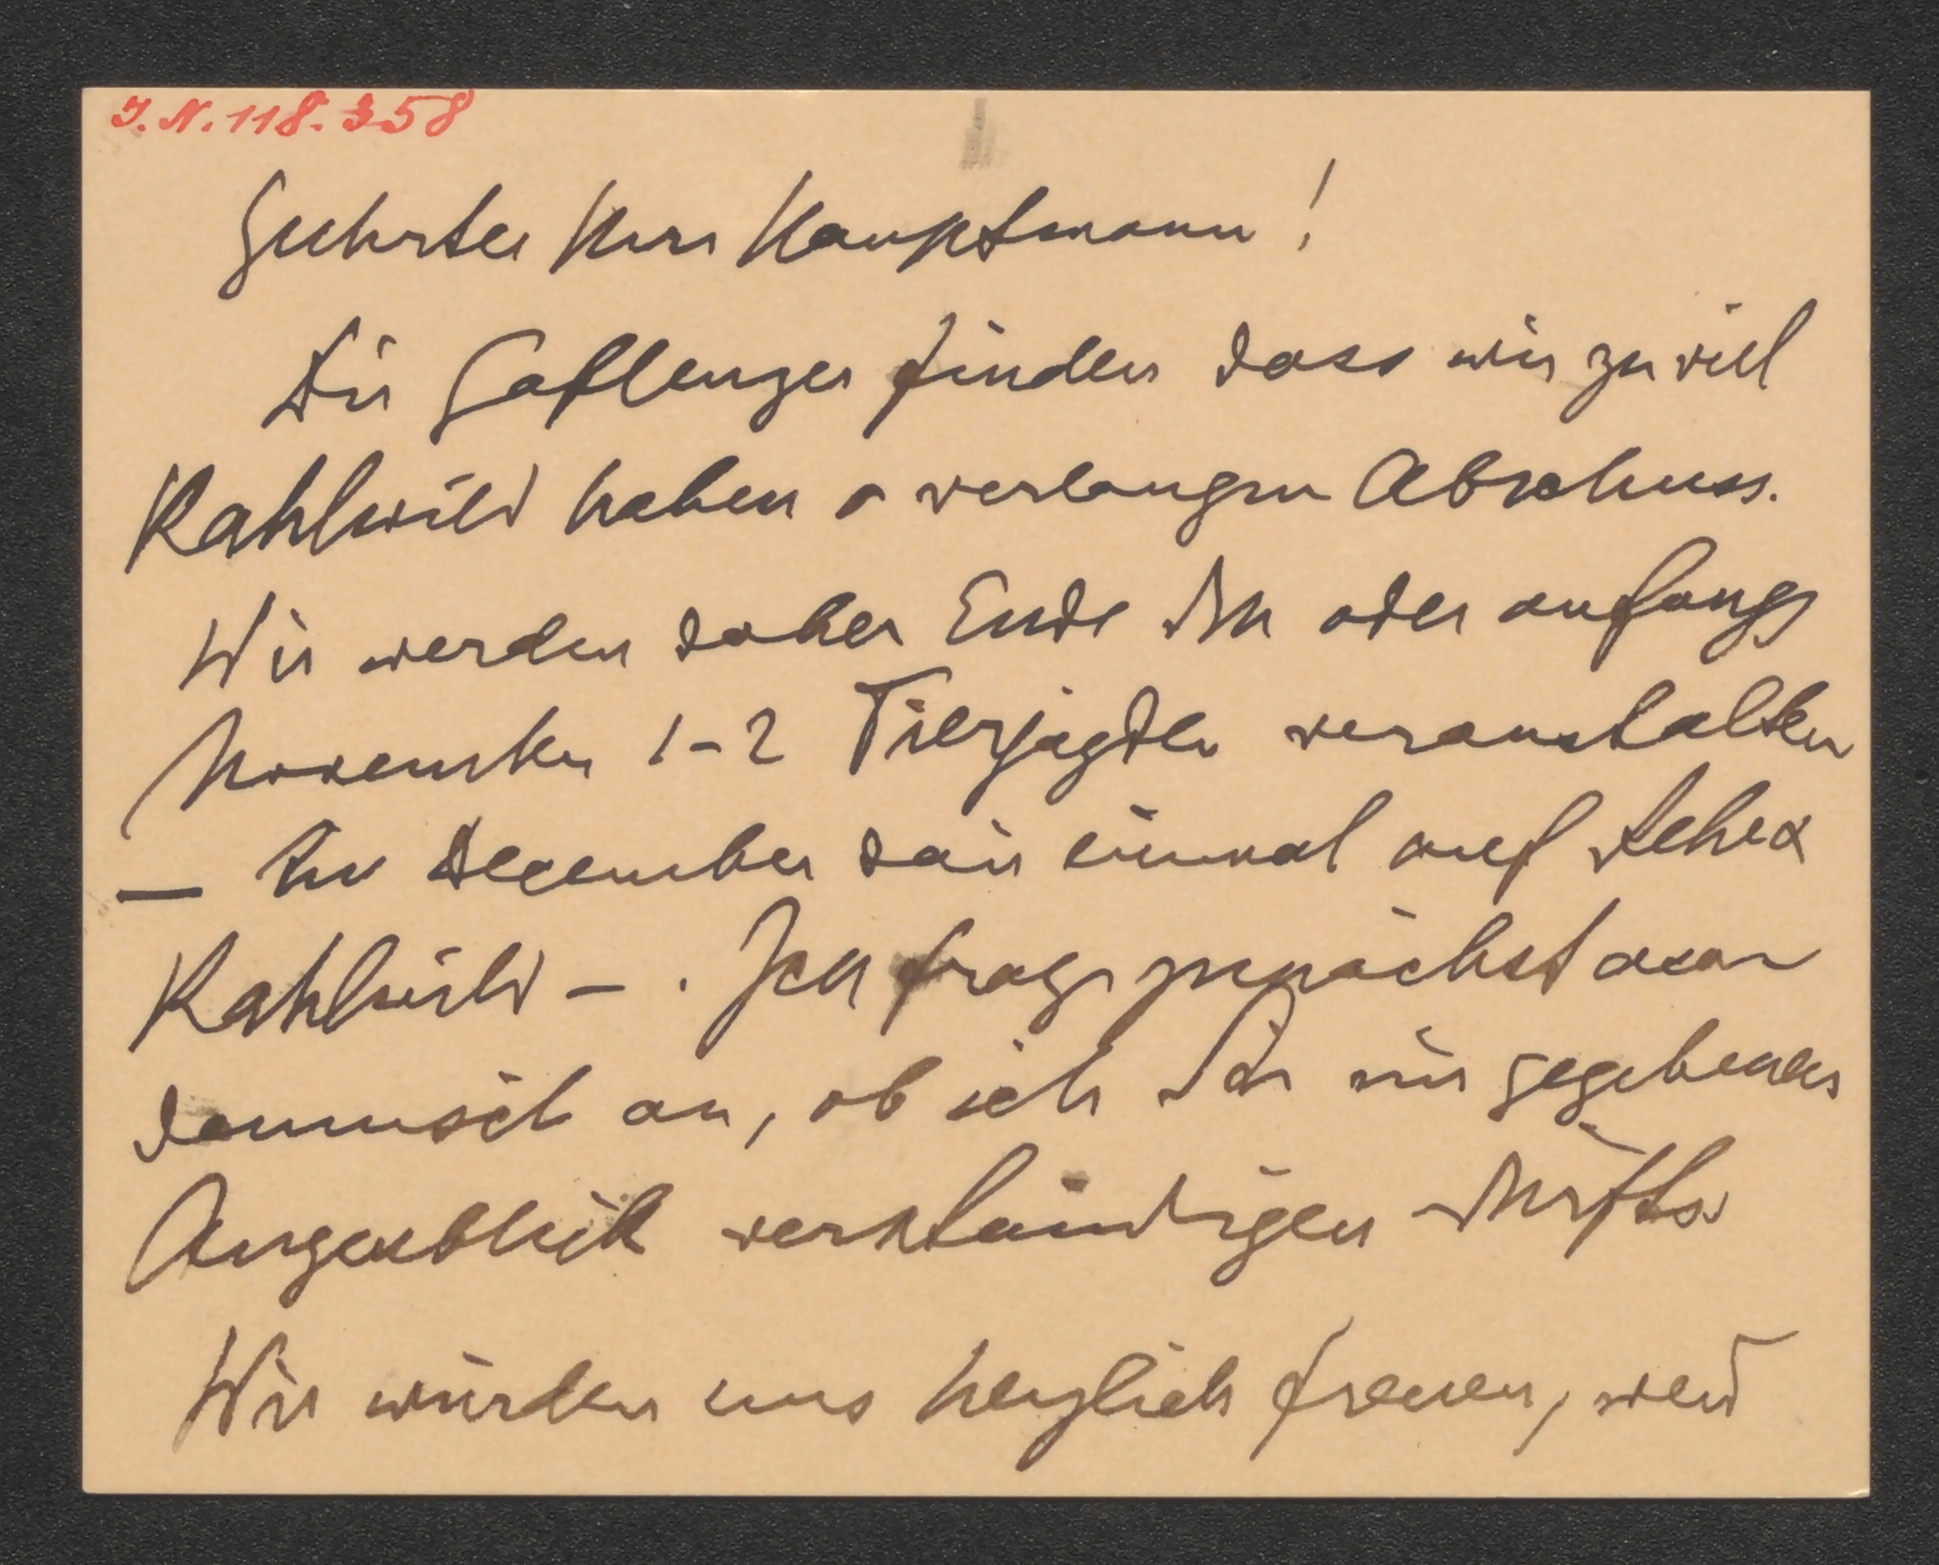 I. N. 118.358
Geehrter Herr Hauptmann!
Die Gaflenzer finden dass wir zu viel
Kahlwild haben u verlangen Abschuss.
Wir werden daher Ende Okt oder anfangs
November 1-2 Tierjagden veranstalten
— Im December dañ einmal auf
Kahlwild – . Ich frage zunächst
an, ob ich Sie im gegebenen
Augenblick verständigen dürfte
Wir würden uns herzlich freuen, weñ